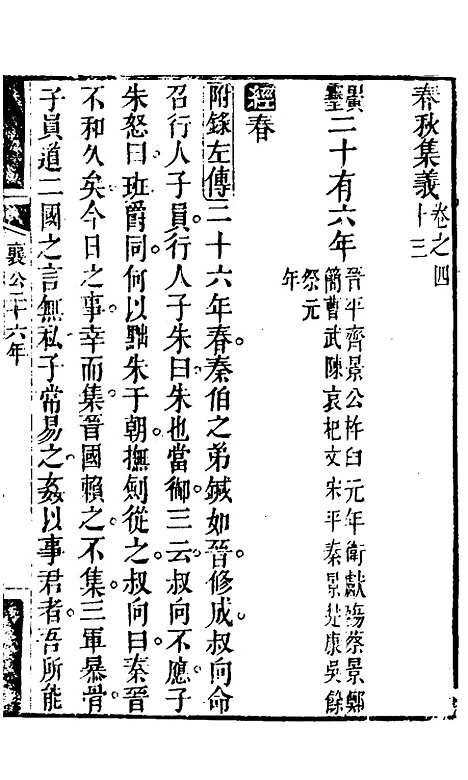 春秋集義卷之四十三
襄靈二十有六年晉平齊景公杵臼元年衛獻殤蔡景鄭
簡曹武陳哀杞文宋平秦景楚康吳餘
祭元
年
經春
附錄左傳二十六年春秦伯之弟鍼如晉修成叔向命
召行人子員行人子朱曰朱也當御三云叔向不應子
朱怒曰班爵同何以黜朱于朝撫劍從之叔向曰秦晉
不和久矣今日之事幸而集晉國賴之不集三軍暴骨
子員道二國之言無私子常易之姦以事君者吾所能
襄公二十六年